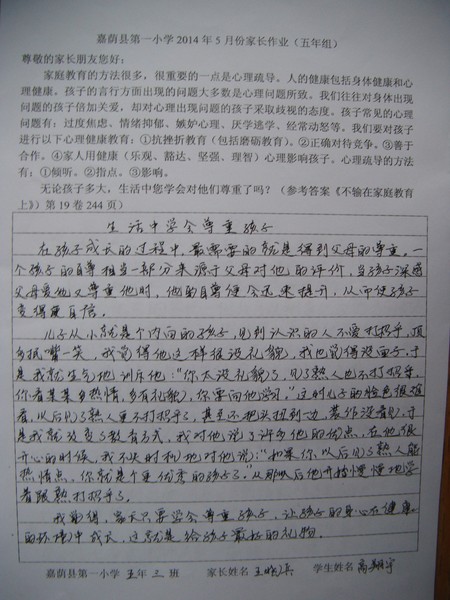 嘉荫县第一小学2014年5月份家长作业（五年组）
尊敬的家长朋友您好：
家庭教育的方法很多，很重要的一点是心理疏导。人的健康包括身体健康和心
理健康。孩子的言行方面出现的问题大多数是心理问题所致。我们往往对身体出现
问题的孩子倍加关爱，却对心理出现问题的孩子采取歧视的态度。孩子常见的心理
问题有：过度焦虑、情绪抑郁、嫉妒心理、厌学逃学、经常动怒等。我们要对孩子
进行以下心理健康教育：①抗挫折教育（包括磨砺教育）。②正确对待竞争。③善于
合作。④家人用健康（乐观、豁达、坚强、理智）心理影响孩子。心理疏导的方法
有：①倾听。②指点。③影响。
无论孩子多大，生活中您学会对他们尊重了吗？（参考答案《不输在家庭教育
上》）第19卷244页）
生活中学会尊重孩子
在孩子成长的过程中，最需要的就是得到父母的尊重。一
个孩子的自尊相当一部分来源于父母对他的评价，当孩子深感
父母爱他又尊重他时，他的自尊便会迅速提升，从而使孩子
变得更自信。
儿子从小就是个内向的孩子，见到认识的人不爱打招呼，顶
多抿嘴一笑，我觉得他这样很没礼貌，我也觉得没面子，于
是我就生气地训斥他：“你太没礼貌了，见了熟人也不打招呼，
你看某某多热情，多有礼貌，你要向他学习。”这时儿子的脸色很难
看，以后见了熟人更不打招呼了，甚至还把头扭到一边，装作没看见，于
是我就改变了教育方式，我对他说了许多他的优点，在他很
开心的时候，我不失时机地对他说：“如果你以后见了熟人能
热情点，你就是个更优秀的孩子了。”从那以后他开始慢慢地学
着跟熟打招呼了。
我觉得，家长只要学会尊重孩子，让孩子的身心在健康
的环境中成长，这就是给孩子最好的礼物。
嘉荫县第一小学 五年三班 家长姓名 王晓 学生姓名 高翔宇